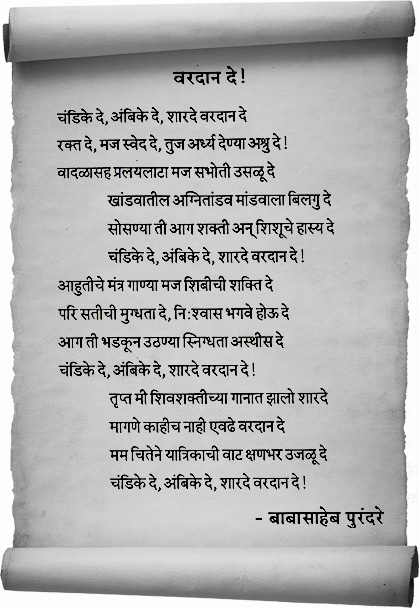 वरदान दे!
चंडिके दे, अंबिके दे, शारदे वरदान दे
रक्त दे, मज स्वेद दे, तुज अर्ध्य देण्या अश्रु दे!
वादळासह प्रलयलाटा मज सभोती उसळू दे
खांडवातील अग्नितांडव मांडवाला बिलगु दे
सोसण्या ती आग शक्ती अन् शिशूचे हास्य दे
चंडिके दे, अंबिके दे, शारदे वरदान दे!
आहुतीचे मंत्र गाण्या मज शिबीची शक्ति दे
परि सतीची मुग्धता दे, नि:श्वास भगवे होऊ दे
आग ती भडकून उठण्या स्निग्धता अस्थीस दे
चंडिके दे, अंबिके दे, शारदे वरदान दे!
तृप्त मी शिवशक्तीच्या गानात झालो शारदे
मागणे काहीच नाही एवढे वरदान दे
मम चितेने यात्रिकाची वाट क्षणभर उजळू दे
चंडिके दे, अंबिके दे, शारदे वरदान दे!
- बाबासाहेब पुरंदरे